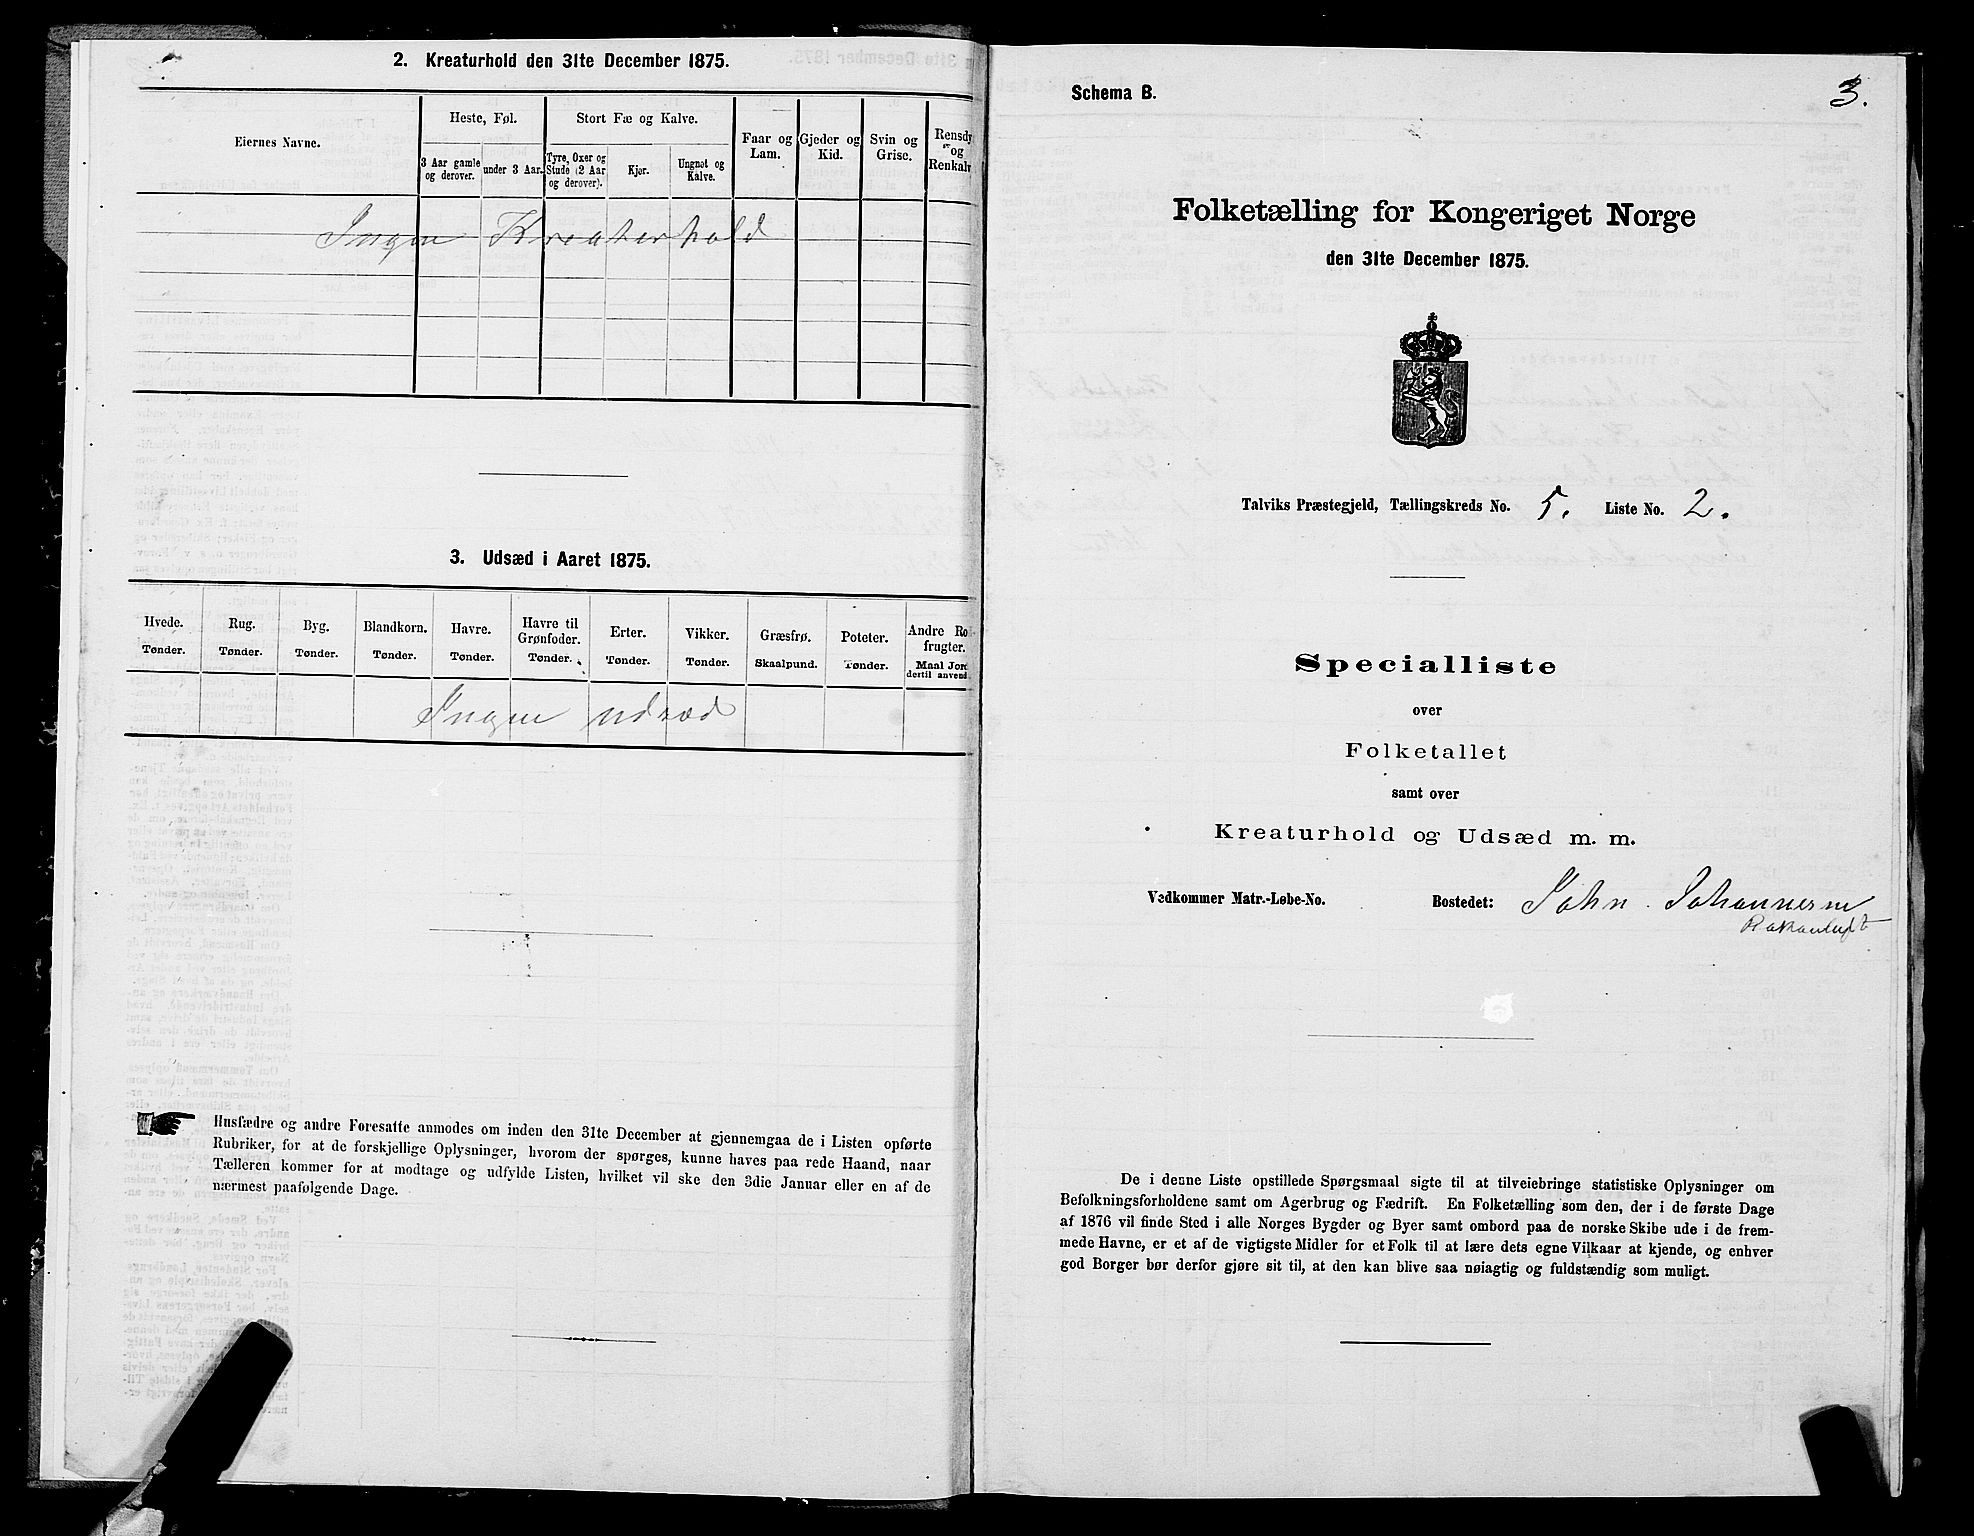 2. Kreaturhold den 31te December 1875.
Eiernes Navne.
Heste, Føl.
3 Aar gamle og derover.
under 3 Aar.
Stort Fæ og Kalve.
Tyre, Oxer og Stude (2 Aar og derover).
Kjør.
Ungnøt og Kalve.
Faar og Lam.
Gjeder og Kid.
Svin og Grise.
Rensdy
og
Renkalv
Ingen Kreaturhold
3. Udsæd i Aaret 1875.
Hvede. Tønder.
Rug. Tønder.
Byg. Tønder.
Blandkorn. Tønder.
Havre. Tønder.
Havre til Grønfoder. Tønder.
Erter. Tønder.
Vikker. Tønder.
Græsfrø. Skaalpund.
Poteter. Tønder.
Andre Ro
frugter.
Maal Jord
dertil anvend.
Ingen udsæd
Husfædre og andre Foresatte anmodes om inden den 31te December at gjennemgaa de i Listen opførte
Rubriker, for at de forskjellige Oplysninger, hvorom der spørges, kunne haves paa rede Haand, naar
Tælleren kommer for at modtage og udfylde Listen, hvilket vil ske den 3die Januar eller en af de
nærmest paafølgende Dage.
Schema B.
3.
Folketælling for Kongeriget Norge
den 31te December 1875.
Talviks Præstegjeld, Tællingskreds No. 5. Liste No. 2.
Specialliste
over
Folketallet
samt over
Kreaturhold og Udsæd m. m.
Vedkommer Matr.-Løbe-No. Bostedet: John Johannesen
De i denne Liste opstillede Spørgsmaal sigte til at tilveiebringe statistiske Oplysninger om
Befolkningsforholdene samt om Agerbrug og Fædrift. En Folketælling som den, der i de første Dage
af 1876 vil finde Sted i alle Norges Bygder og Byer samt ombord paa de norske Skibe ude i de frem-
mede Havne, er et af de vigtigste Midler for et Folk til at lære dets egne Vilkaar at kjende, og enhver
god Borger bør derfor gjøre sit til, at den kan blive saa nøiagtig og fuldstændig som muligt.